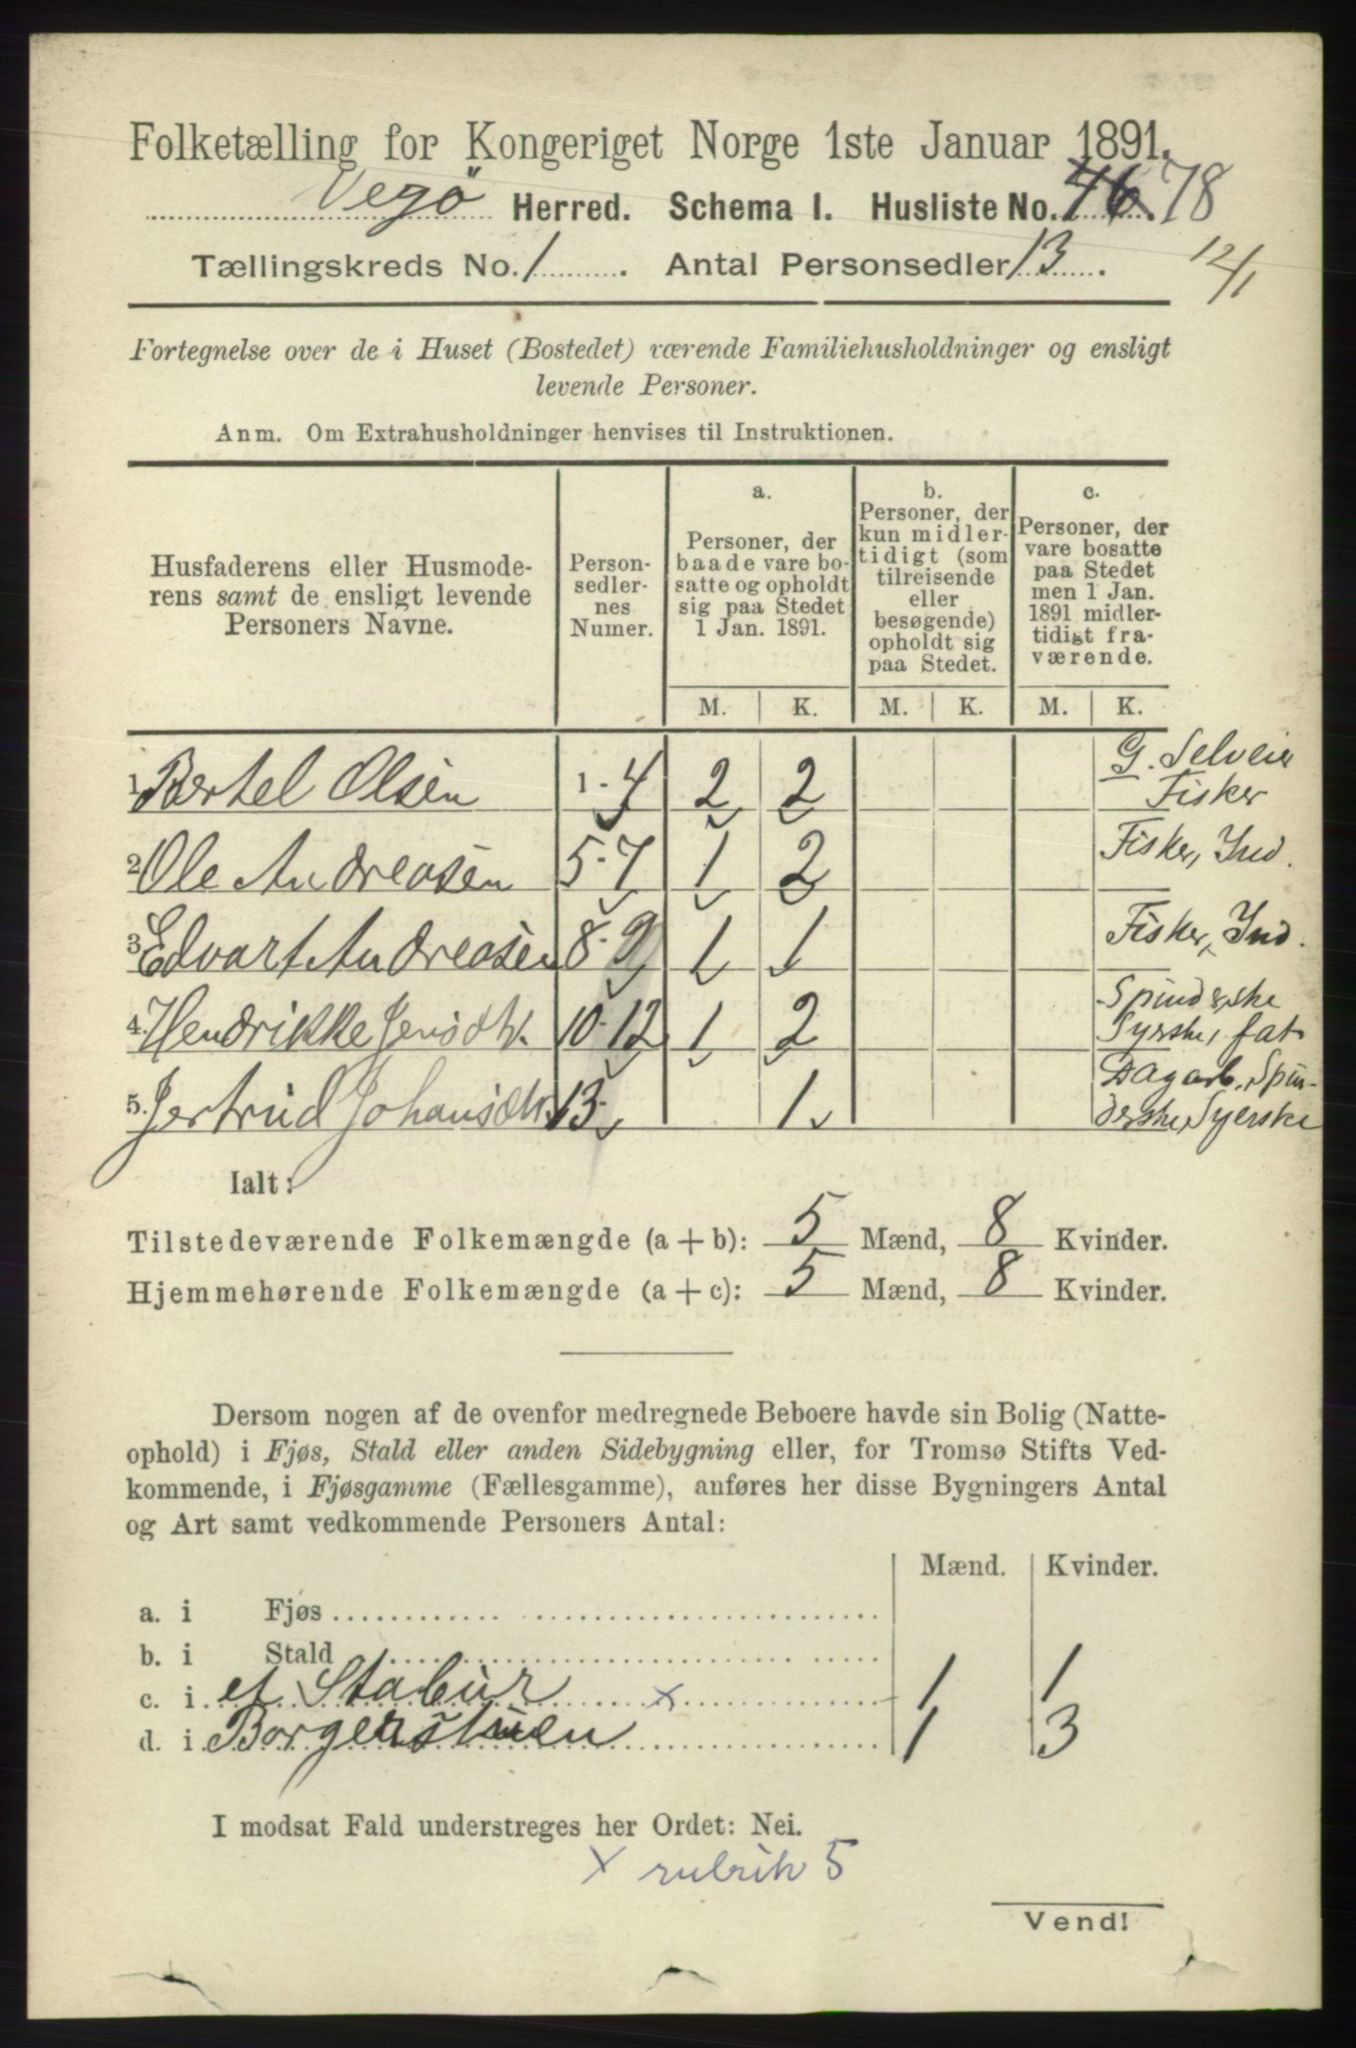 Folketælling for Kongeriget Norge 1ste Januar 1891.
Vegö Herred. Schema I. Husliste No. 46. 78
Tællingskreds No. 1. Antal Personsedler 13. 12/1
Fortegnelse over de i Huset (Bostedet) værende Familiehusholdninger og ensligt
levende Personer.
Anm. Om Extrahusholdninger henvises til Instruktionen.
Husfaderens eller Husmode-
rens samt de ensligt levende
Personers Navne.
Person-
sedler-
nes
Numer.
a.
Personer, der
baade vare bo-
satte og opholdt
sig paa Stedet
1 Jan. 1891.
b.
Personer, der
kun midler-
tidigt (som
tilreisende
eller
besøgende)
opholdt sig
paa Stedet.
c.
Personer, der
vare bosatte
paa Stedet
men 1 Jan.
1891 midler-
tidigt fra-
værende.
M. K. M. K. M. K.
1. Bertel Olsen 1-4 2 2 G. Selveier
Fisker
2. Ole Andreasen 5-7 1 2 Fisker, Ind.
3. Edvart Andreasen 8-9 1 1 Fisker, Ind.
4. Hendrikke Jensdtr. 10-12 1 2 Spinderske
Syrske, fat
5. Jertrud Johansdtr. 13- 1 Dagarb. Spin-
derske, Syerske
Ialt:
Tilstedeværende Folkemængde (a + b): 5 Mænd, 8 Kvinder.
Hjemmehørende Folkemængde (a + c): 5 Mænd, 8 Kvinder.
Dersom nogen af de ovenfor medregnede Beboere havde sin Bolig (Natte-
ophold) i Fjøs, Stald eller anden Sidebygning eller, for Tromsø Stifts Ved-
kommende, i Fjøsgamme (Fællesgamme), anføres her disse Bygningers Antal
og Art samt vedkommende Personers Antal:
Mænd. Kvinder.
a. i Fjøs
b. i Stald
c. i et Stabur x 1 1
d. i Borgerstuen 1 3
I modsat Fald understreges her Ordet: Nei.
x rubrik 5
Vend!